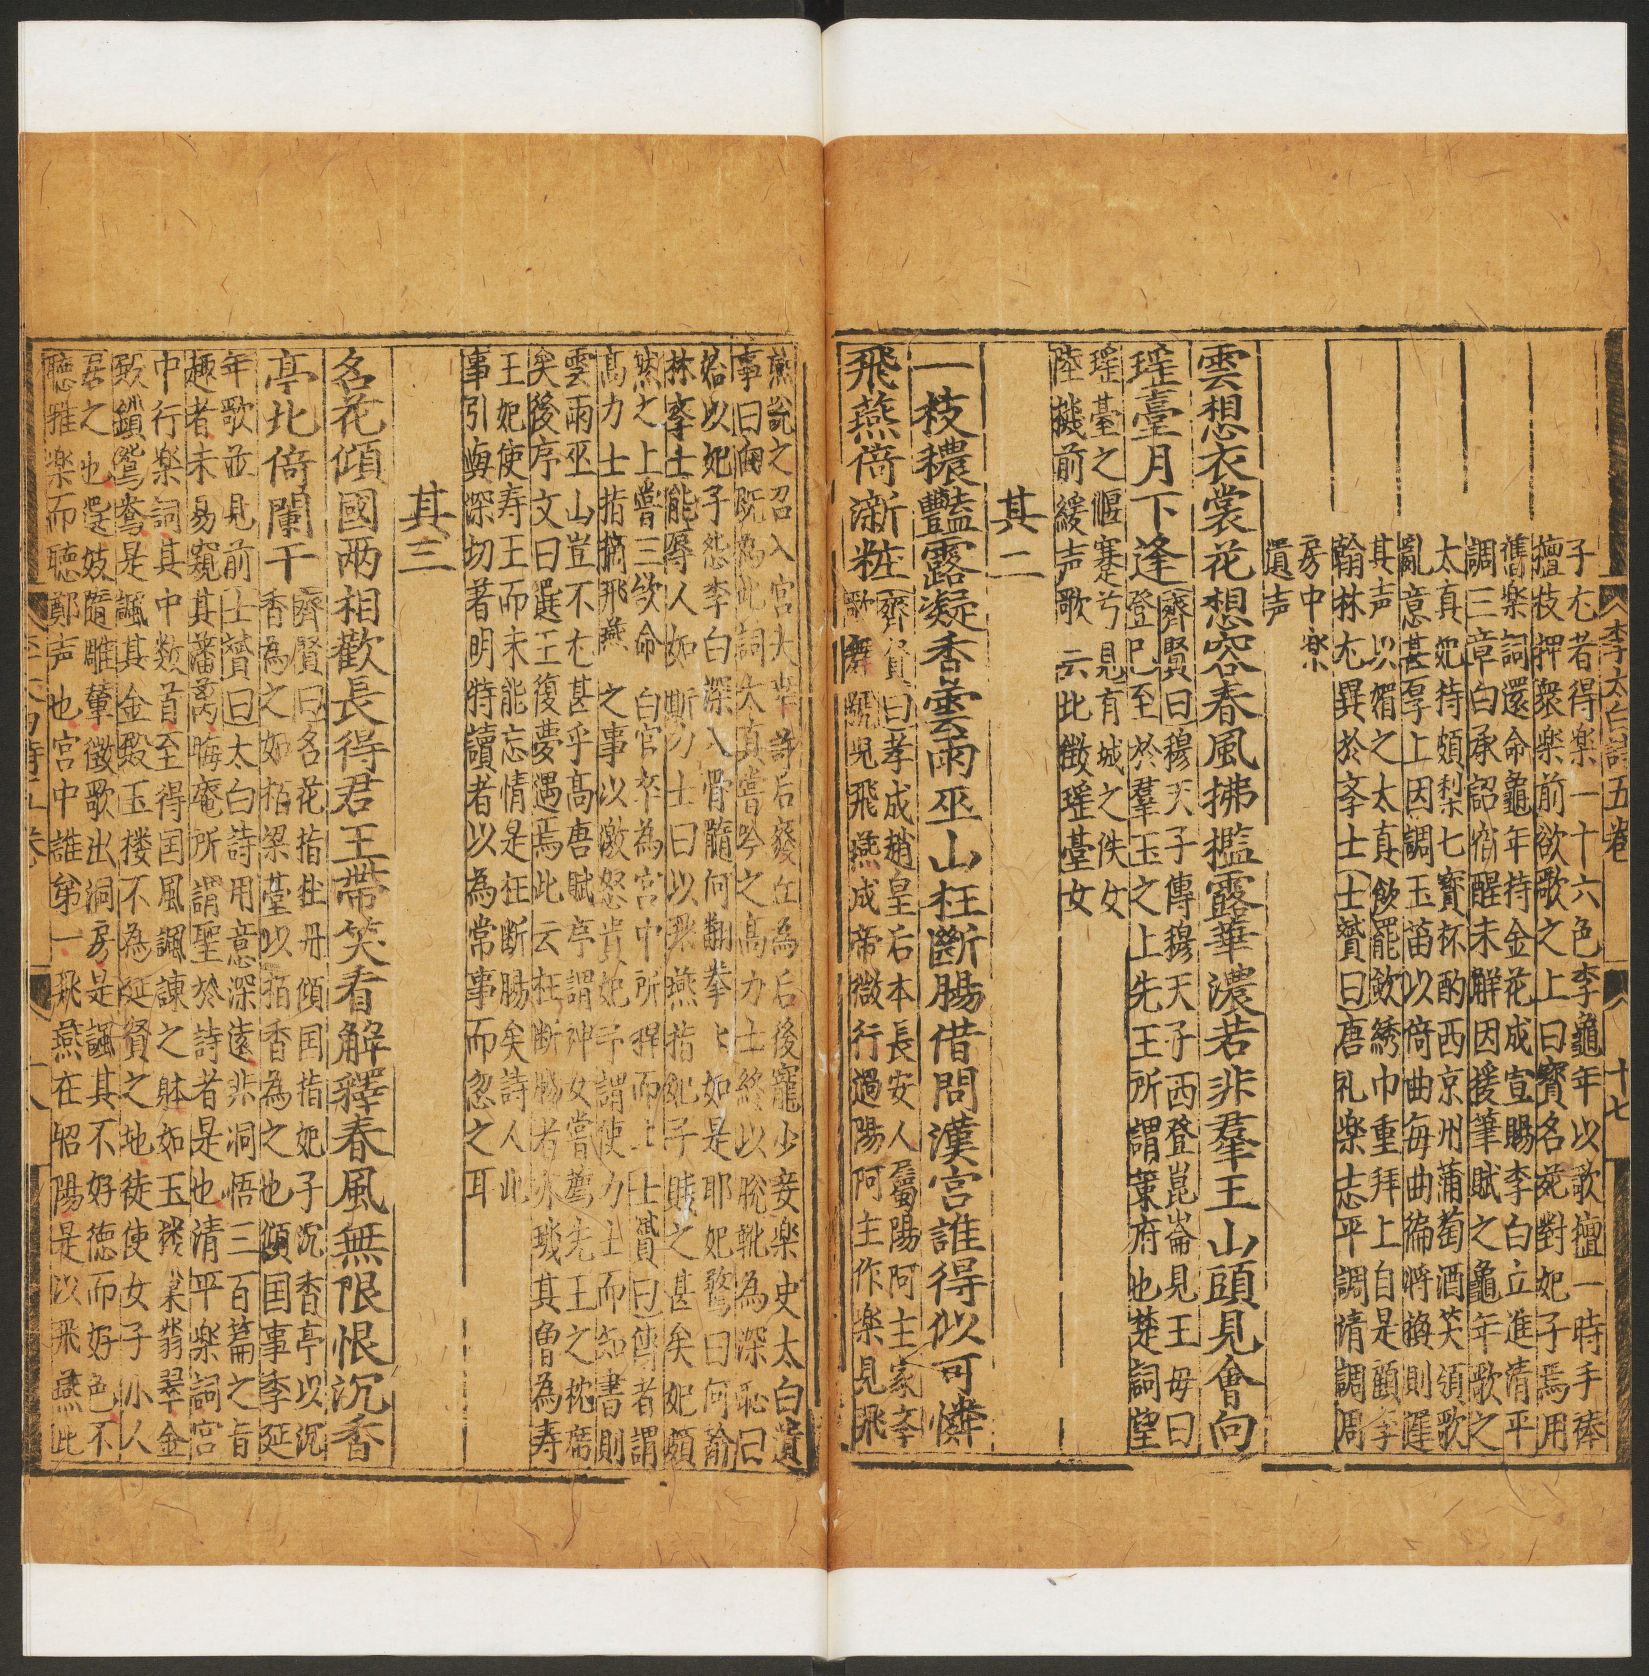 李太白詩五卷 十七
子尤者得樂一十六色李龜年以歌擅一時手捧
擅枝押衆樂前欲歌之上曰賞名花對妃子焉用
舊樂詞還命龜年持金花成宣賜李白立進清平
調三章白承詔宿酲未觧因援筆賦之龜年歌之
太真妃持頗梨七寳杯酌西京州蒲萄酒笑領歌
亂意甚厚上因調玉笛以倚曲每曲徧將換則遲
其声以媚之太真飲罷斂綉巾重拜上自是顧李
翰林尤異於李士士贇曰唐礼樂志平調清調周
房中樂
遺声
雲想衣裳花想容春風拂檻露華濃若非羣玉山頭見會向
瑤臺月下逢
齊賢曰穆天子傳穆天子西登崑崙見王母曰
登巳至於羣玉之上先王所謂策府也楚詞望
瑤臺之偃蹇兮見有娀之佚女
陸機前緩声歌云北徵瑤臺女
其二
一枝穠豔露凝香雲雨巫山枉斷腸借問漢宫誰得似可憐
飛燕倚新粧
齊賢曰孝成趙皇后本長安人屬陽阿主家李
歌舞號曰飛燕成帝微行過陽阿主作樂見飛
燕說之召入宫大幸許后廢立為后後寵少妾樂史太白遺
事曰白既為此詞太真嘗吟之髙力士終以脫靴為深恥曰
始以妃子怨李白深入骨髓何翻拳〻如是耶妃驚曰何翰
林李士能辱人如斯力士曰以飛燕指妃子賤之甚矣妃頗
然之上嘗三欲命白官卒為宫中所捍而止士贇曰傳者謂
髙力士指摘飛燕之事以激怒貴妃予謂使力士而知書則
雲雨巫山豈不尤甚乎髙唐賦序謂神女嘗薦先王之枕席
矣後序文曰襄王復夢遇焉此云枉断腸者亦譏其曾為寿
王妃使寿王而未能忘情是枉断腸矣詩人此
事引㒇深切著明特讀者以為常事而忽之耳
其三
名花傾國兩相歡長得君王帶笑看觧釋春風無限恨沉香
亭北倚闌干
齊賢曰名花指牡丹傾国指妃子沉香亭以沉
香為之如栢梁臺以栢香為之也傾国事李延
年歌並見前士贇曰太白詩用意深遠非洞悟三百篇之旨
趣者未易窺其藩籬晦庵所謂聖於詩者是也清平樂詞宫
中行樂詞其中数首至得国風諷諫之躰如玉楼巢翡翠金
殿鎖鴛鴦是諷其金殿玉楼不為延賢之地徒使女子小人
居之也選妓隨雕輦徵歌出洞房是諷其不好徳而好色不
聽雅樂而聴鄭声也宫中誰第一飛燕在昭陽是以飛燕比